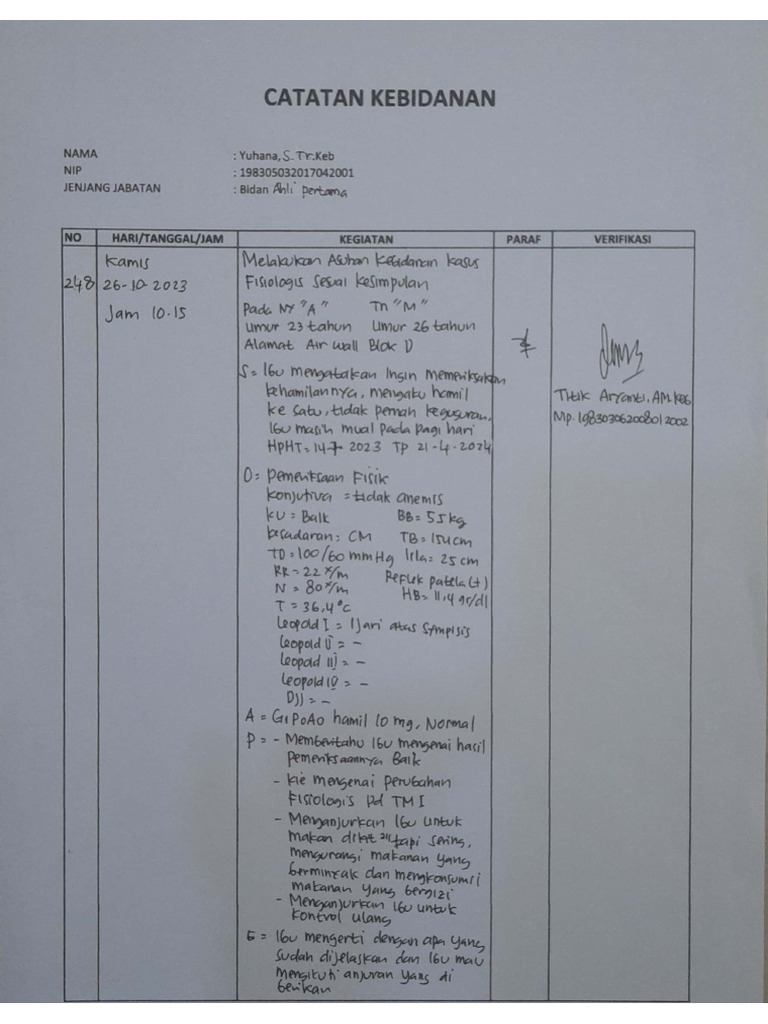 CATATAN KEBIDANAN
NAMA : Yuhana, S.Tr.Keb
NIP : 198305032017042001
JENJANG JABATAN : Bidan Ahli Pertama
NO HARI/TANGGAL/JAM KEGIATAN PARAF VERIFIKASI
248
Kamis
26-10-2023
Jam 10.15
Melakukan Asuhan Kebidanan Kasus
Fisiologis Sesuai Kesimpulan
Pada NY "A" Tn "M"
Umur 23 tahun Umur 26 tahun
Alamat Air Wall Blok D
S = Ibu mengatakan Ingin Memeriksakan
kehamilannya, mengaku hamil
ke satu, tidak pernah keguguran,
Ibu masih mual pada pagi hari
HPHT = 14-7 2023 TP 21-4-2024
O = Pemeriksaan Fisik
Konjutiva = tidak anemis
KU = Baik BB = 55 kg
kesadaran : CM TB = 154 cm
TD = 100/60 mmHg lila = 25 cm
RR = 22 x/m Reflek patela (+)
N = 80 x/m HB = 11,4 gr/dl
T = 36,4°C
Leopold I = 1 Jari atas Sympisis
Leopold II = -
Leopold III = -
Leopold IV = -
DJJ = -
A = G1P0A0 hamil 10 mg, Normal
P = - Memberitahu Ibu mengenai hasil
Pemeriksaannya Baik
- kie mengenai perubahan
Fisiologis Pd TM I
- Menganjurkan Ibu untuk
makan dikit 2 tapi sering,
mengurangi makanan yang
berminyak dan mengkonsumsi
makanan yang bergizi
- Menganjurkan Ibu untuk
kontrol ulang
E = Ibu mengerti dengan apa yang
sudah dijelaskan dan Ibu mau
mengikuti anjuran yang di
berikan
Titik Aryanti, AM.Keb
Nip. 198303062008012002